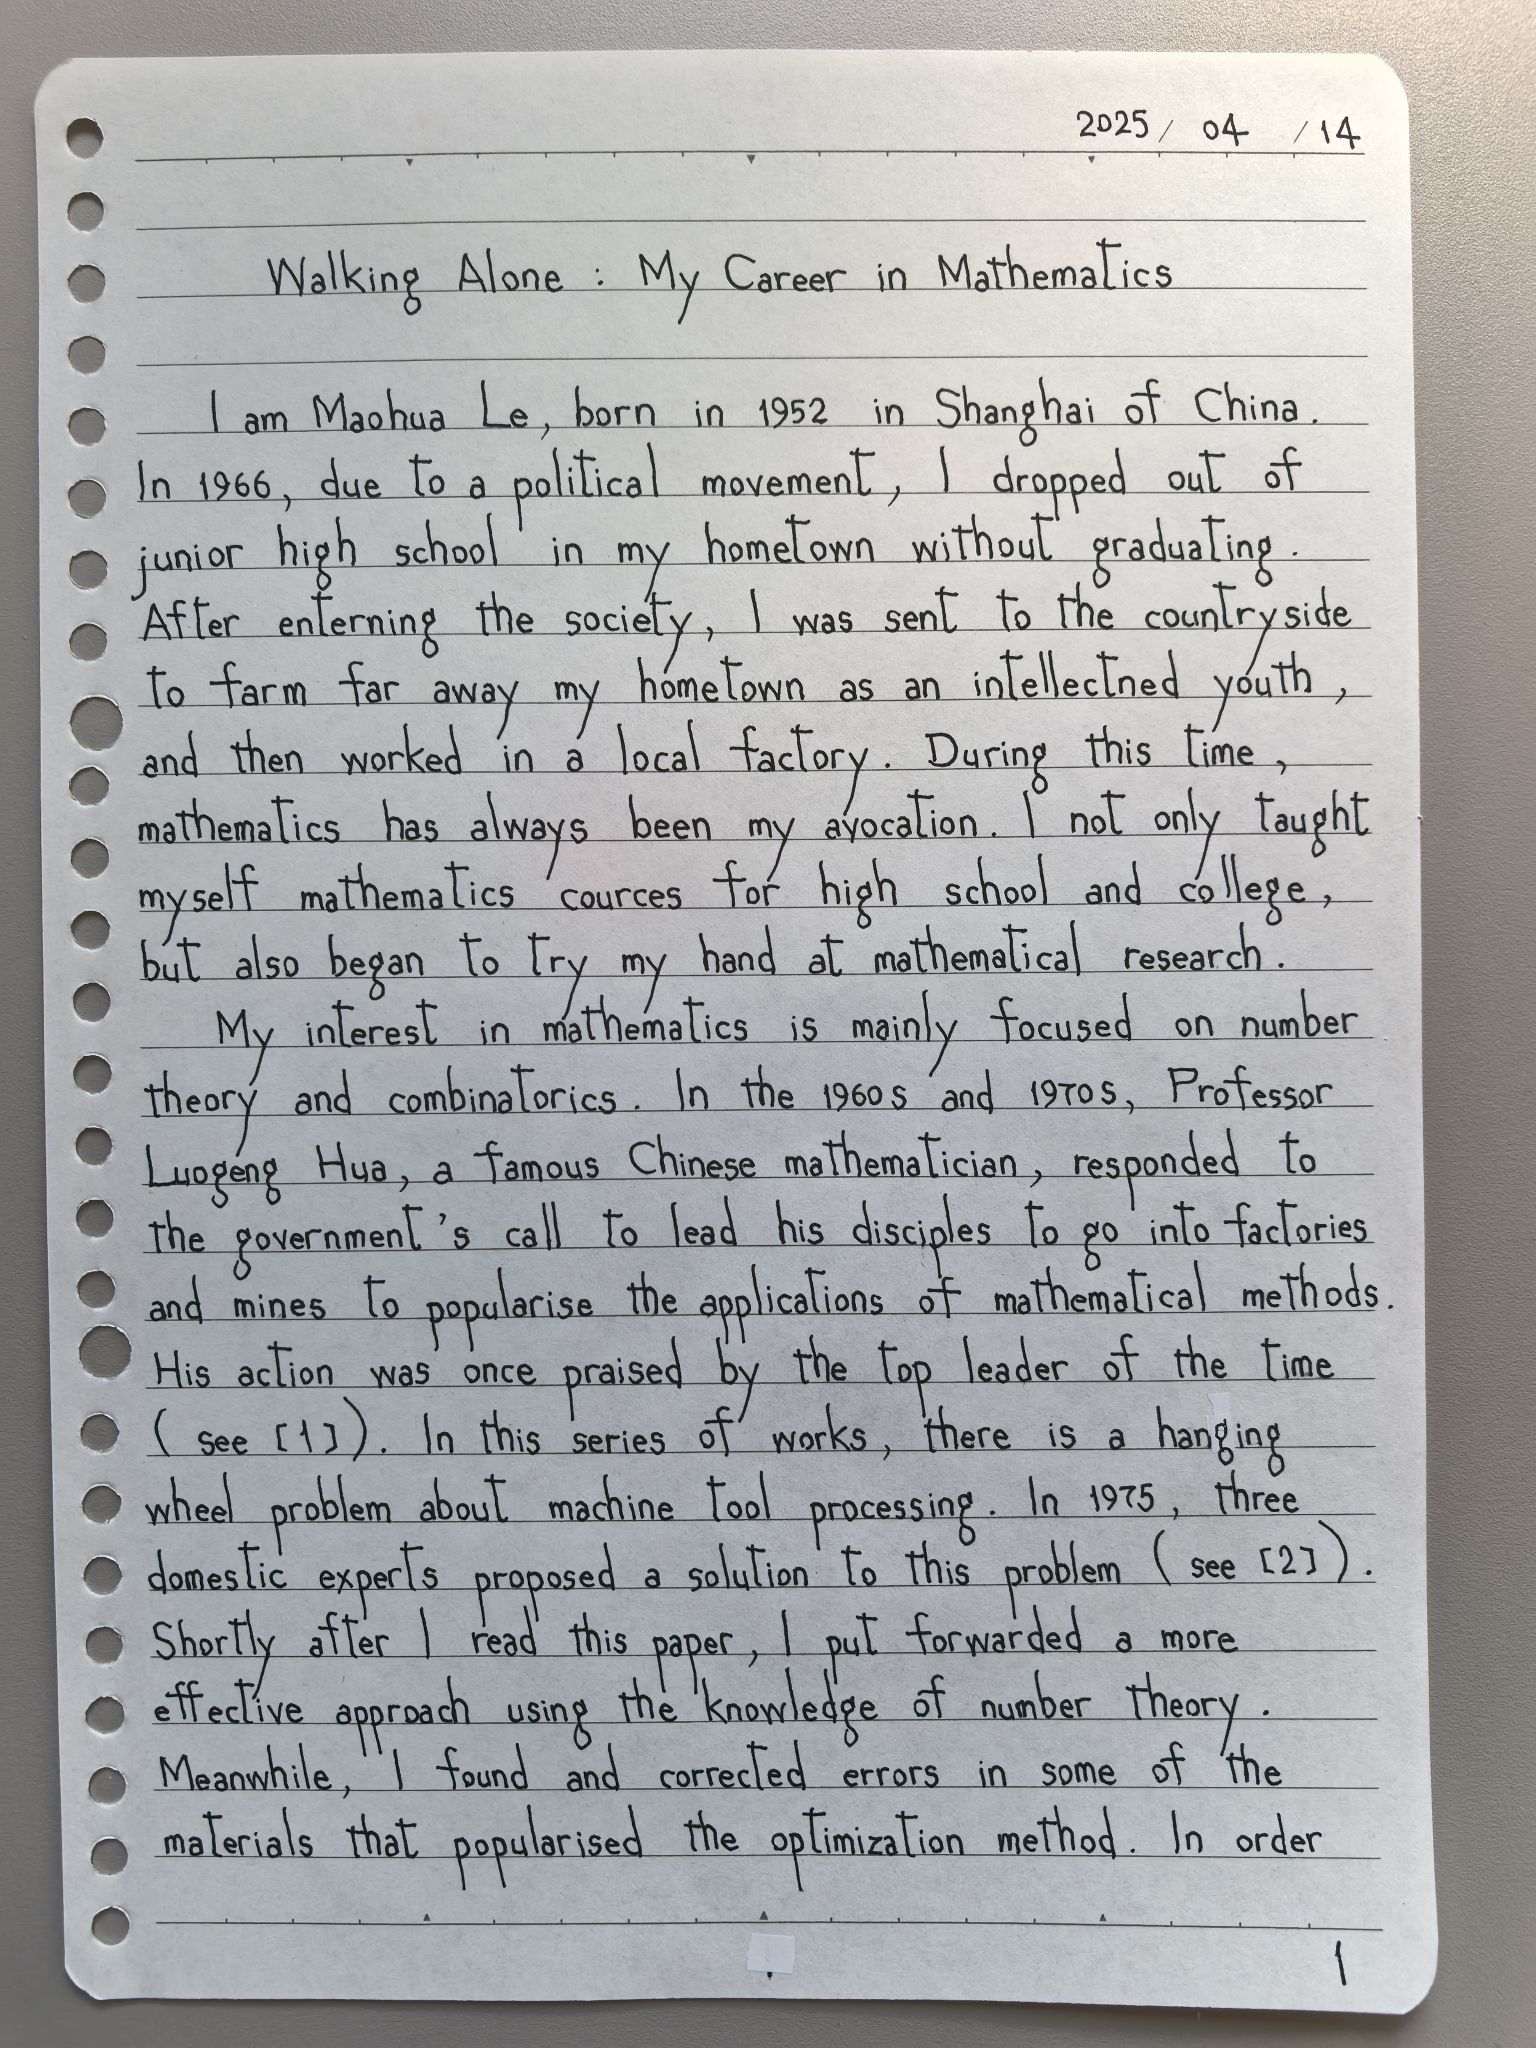 2025/ 04 /14
Walking Alone : My Career in Mathematics
I am Maohua Le, born in 1952 in Shanghai of China.
In 1966, due to a political movement, I dropped out of
junior high school in my hometown without graduating.
After enterning the society, I was sent to the countryside
to farm far away my hometown as an intellectned youth,
and then worked in a local factory. During this time,
mathematics has always been my avocation. I not only taught
myself mathematics cources for high school and college,
but also began to try my hand at mathematical research.
My interest in mathematics is mainly focused on number
theory and combinatorics. In the 1960s and 1970s, Professor
Luogeng Hua, a famous Chinese mathematician, responded to
the government's call to lead his disciples to go into factories
and mines to popularise the applications of mathematical methods.
His action was once praised by the top leader of the time
(see [1]). In this series of works, there is a hanging
wheel problem about machine tool processing. In 1975, three
domestic experts proposed a solution to this problem (see [2]).
Shortly after I read this paper, I put forwarded a more
effective approach using the knowledge of number theory.
Meanwhile, I found and corrected errors in some of the
materials that popularised the optimization method. In order
1